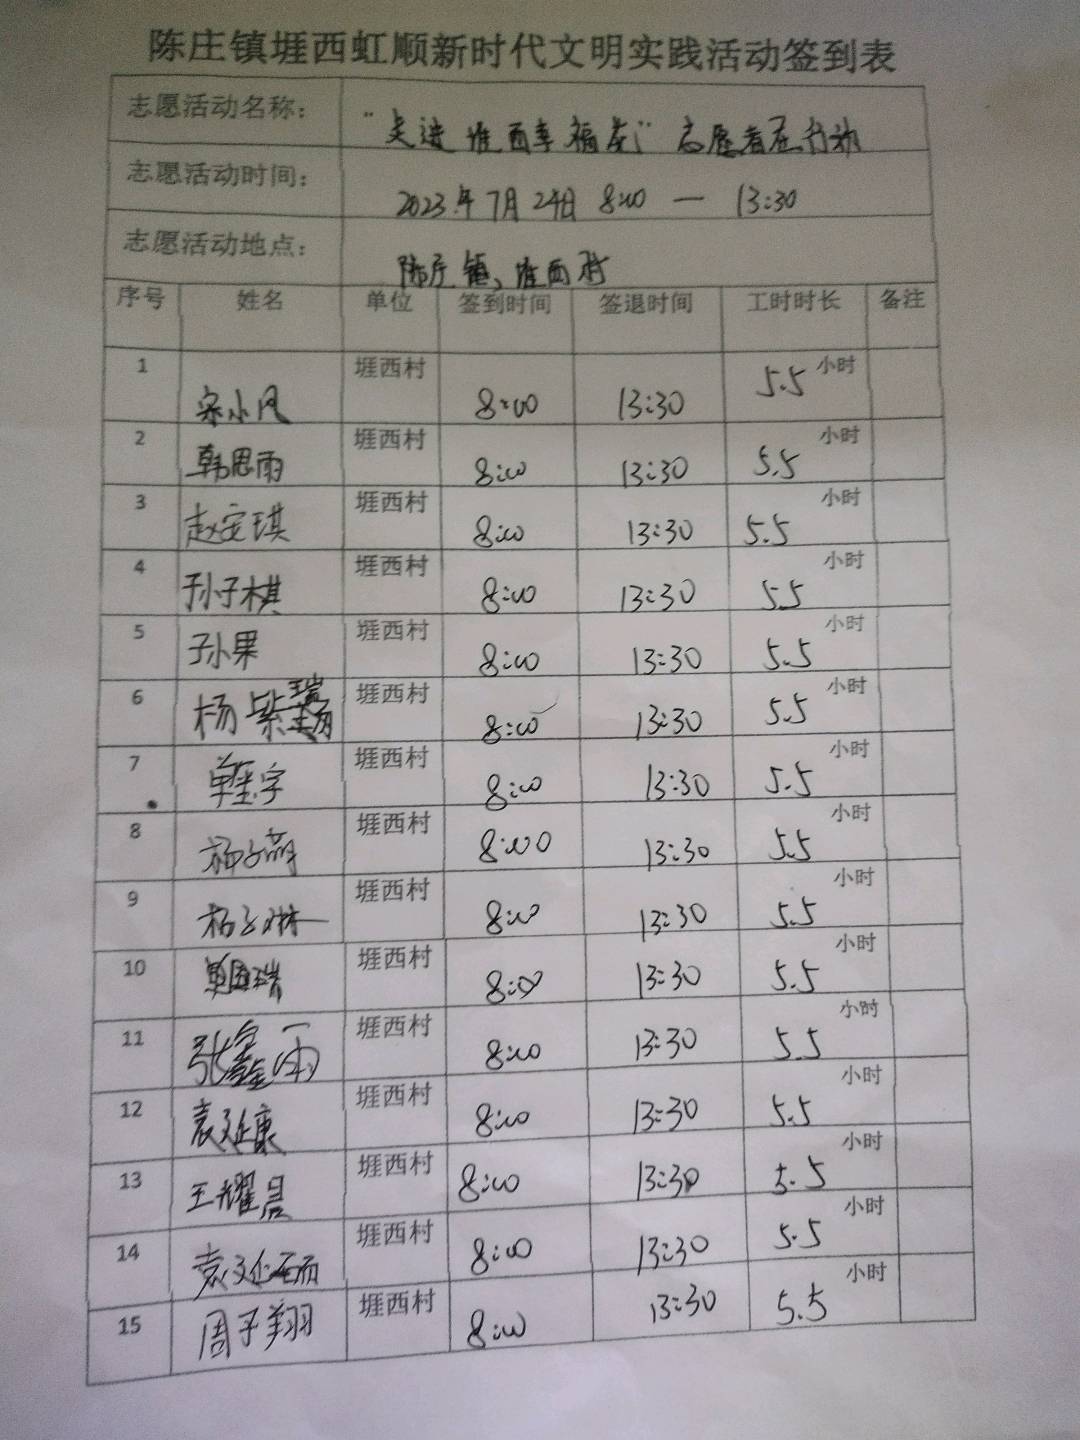 陈庄镇堐西虹顺新时代文明实践活动签到表
志愿活动名称： “走进堐西幸福房”志愿者在行动
志愿活动时间： 2023年7月24日 8:00 — 13:30
志愿活动地点： 陈庄镇、堐西村
序号 姓名 单位 签到时间 签退时间 工时时长 备注
1 宋小凡 堐西村 8:00 13:30 5.5 小时
2 韩思雨 堐西村 8:00 13:30 5.5 小时
3 赵安琪 堐西村 8:00 13:30 5.5 小时
4 孙子棋 堐西村 8:00 13:30 5.5 小时
5 孙果 堐西村 8:00 13:30 5.5 小时
6 杨紫瑞 堐西村 8:00 13:30 5.5 小时
7 堐西村 8:00 13:30 5.5 小时
8 杨子萌 堐西村 8:00 13:30 5.5 小时
9 杨子琳 堐西村 8:00 13:30 5.5 小时
10 堐西村 8:00 13:30 5.5 小时
11 张鑫雨 堐西村 8:00 13:30 5.5 小时
12 袁延康 堐西村 8:00 13:30 5.5 小时
13 王耀晨 堐西村 8:00 13:30 5.5 小时
14 堐西村 8:00 13:30 5.5 小时
15 周子翔 堐西村 8:00 13:30 5.5 小时